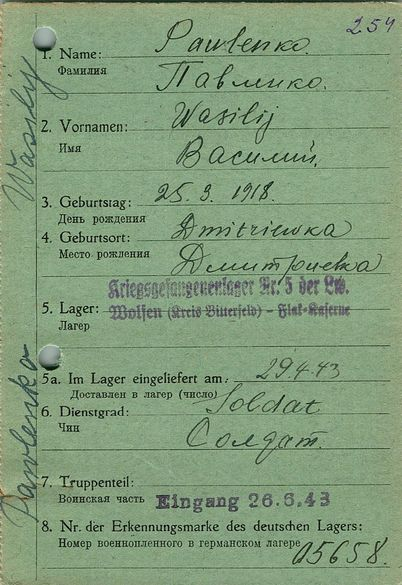 254
1. Name: Pawlenko.
Фамилия Павленко.
2. Vornamen: Wasilij
Имя Василий.
3. Geburtstag: 25. 3. 1918.
День рождения
4. Geburtsort: Dmitriewka
Место рождения Дмитриевка
Kriegsgefangenenlager Nr. 5 der Lw.
5. Lager: Wolfen (Kreis Bitterfeld) – Flak-Kaserne
Лагер
5a. Im Lager eingeliefert am: 29.4.43
Доставлен в лагер (число)
6. Dienstgrad: Soldat
Чин Солдат.
7. Truppenteil:
Воинская часть Eingang 26.6.43
8. Nr. der Erkennungsmarke des deutschen Lagers:
Номер военнопленного в германском лагере 05658.
Pawlenko Wassily